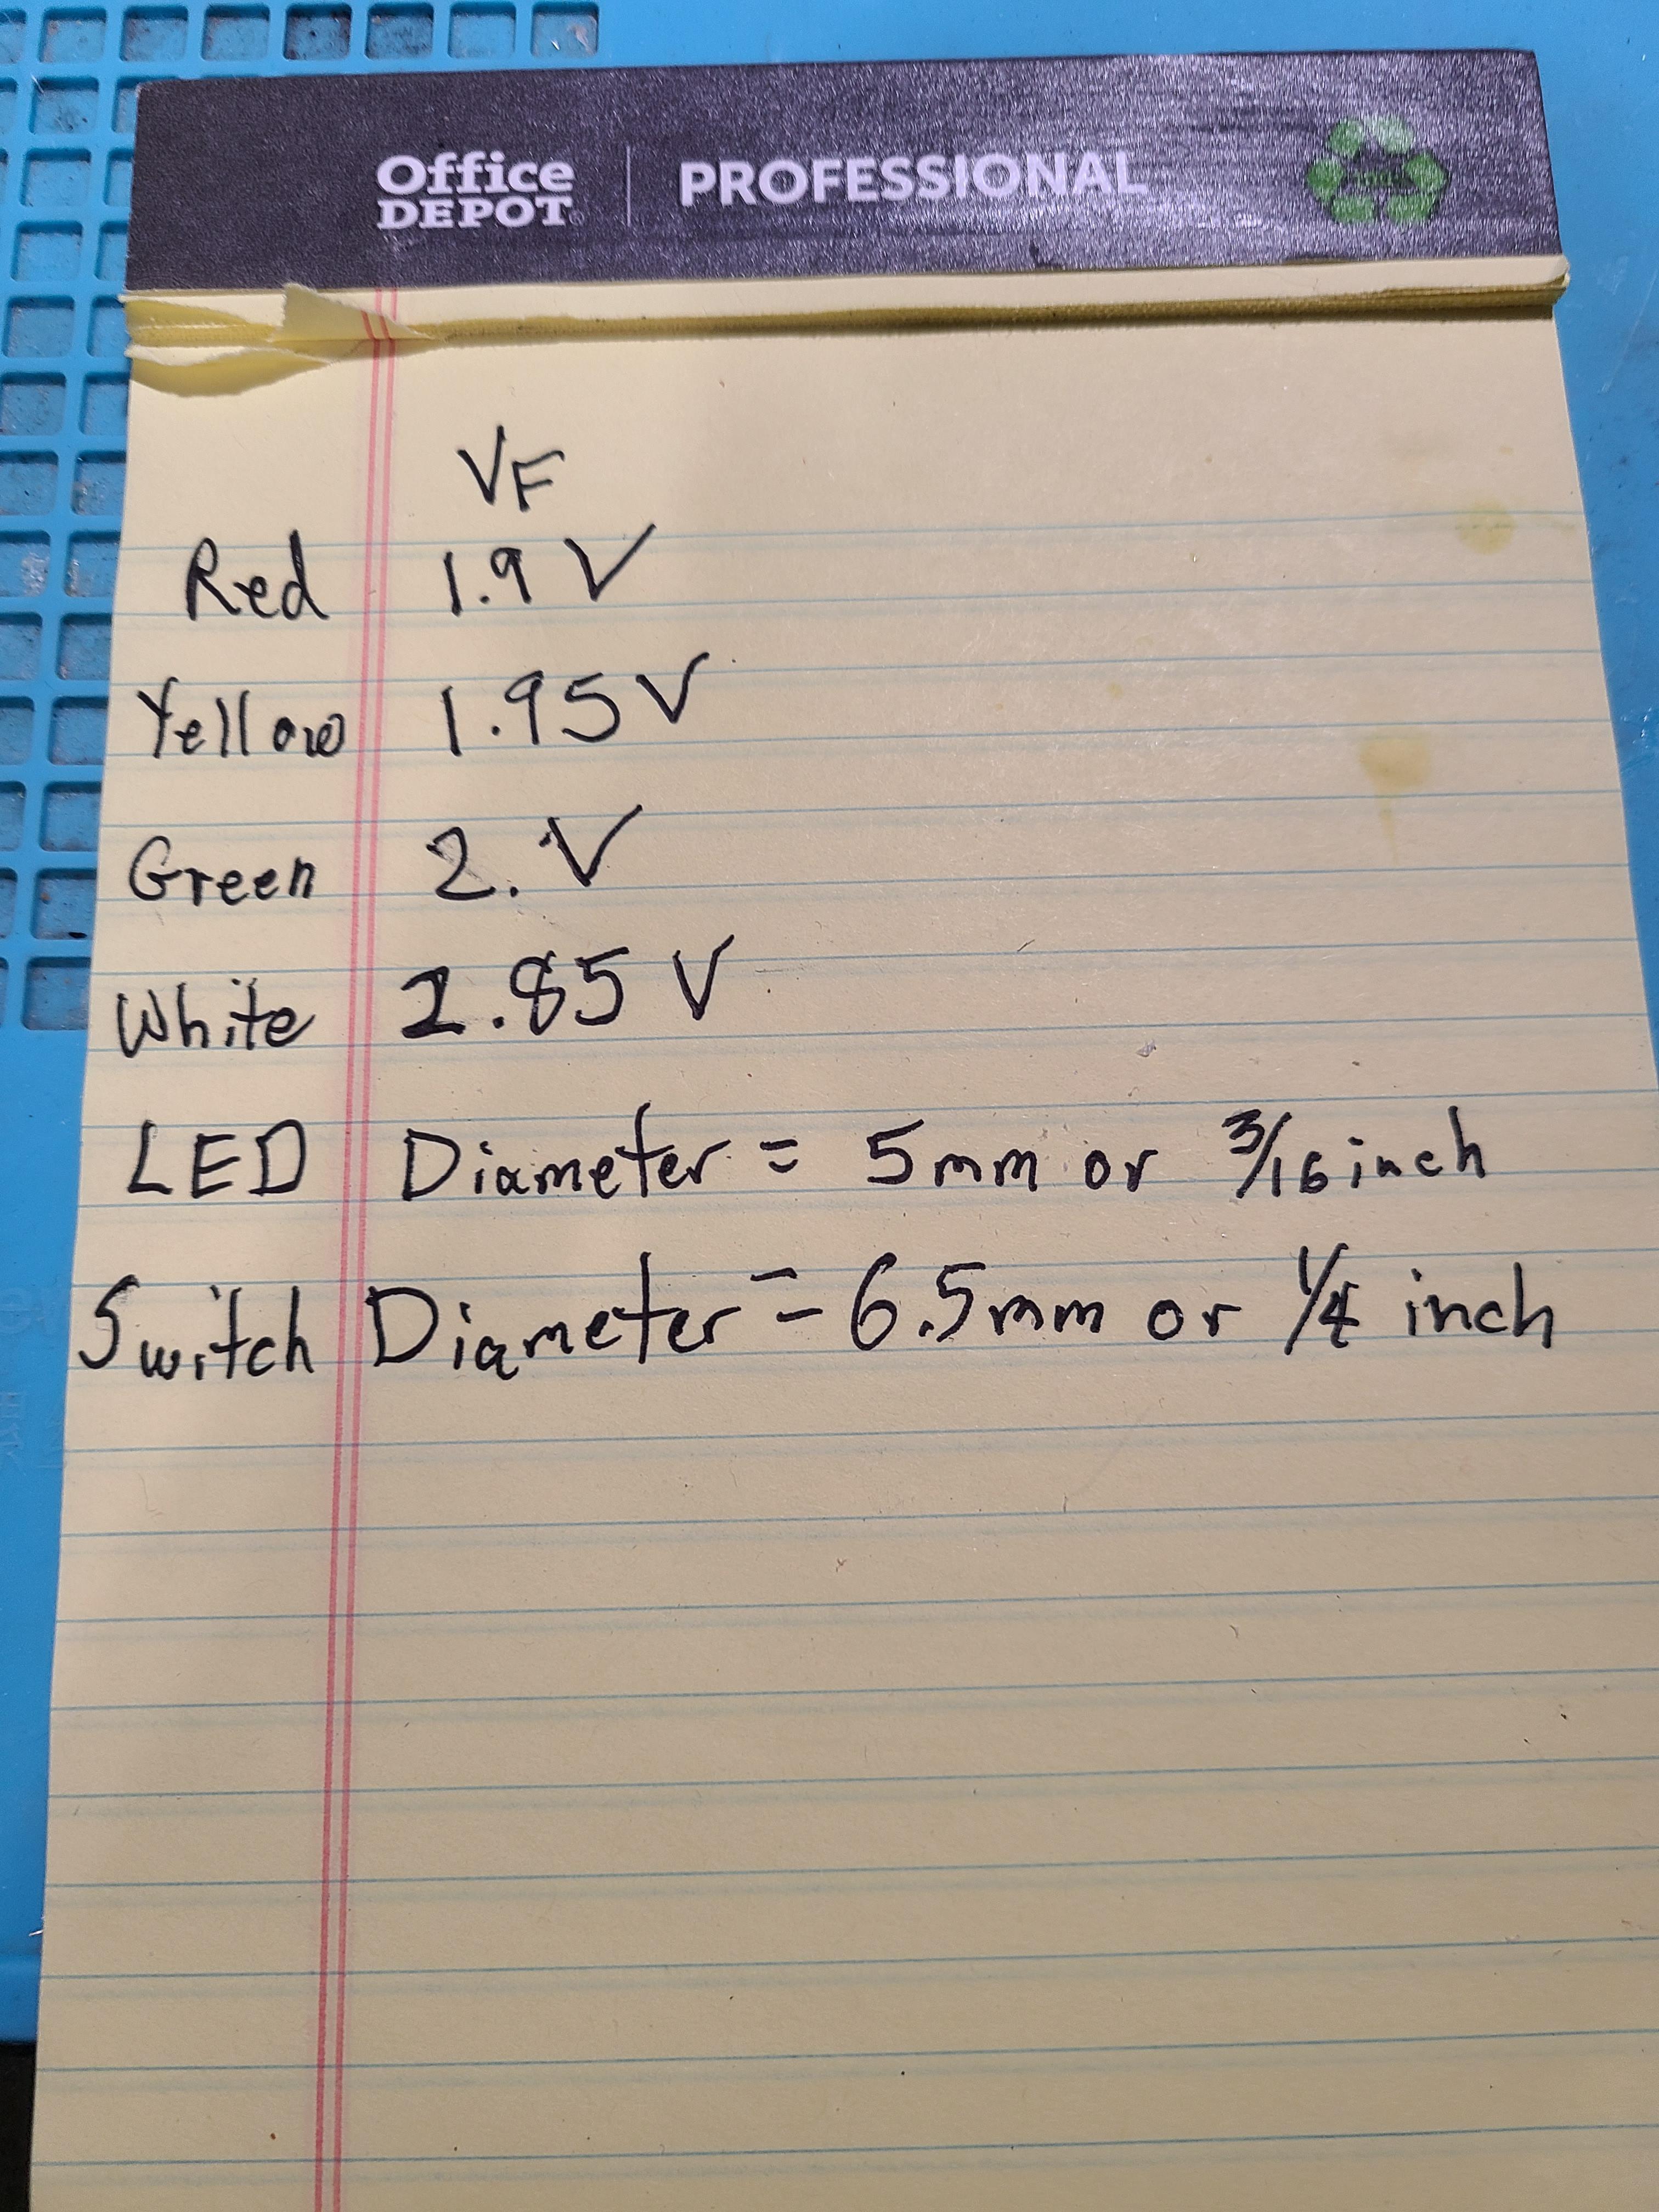 Office DEPOT | PROFESSIONAL
VF
Red 1.9 V
Yellow 1.95 V
Green 2. V
White 2.85 V
LED Diameter = 5mm or 3/16 inch
Switch Diameter = 6.5mm or 1/4 inch